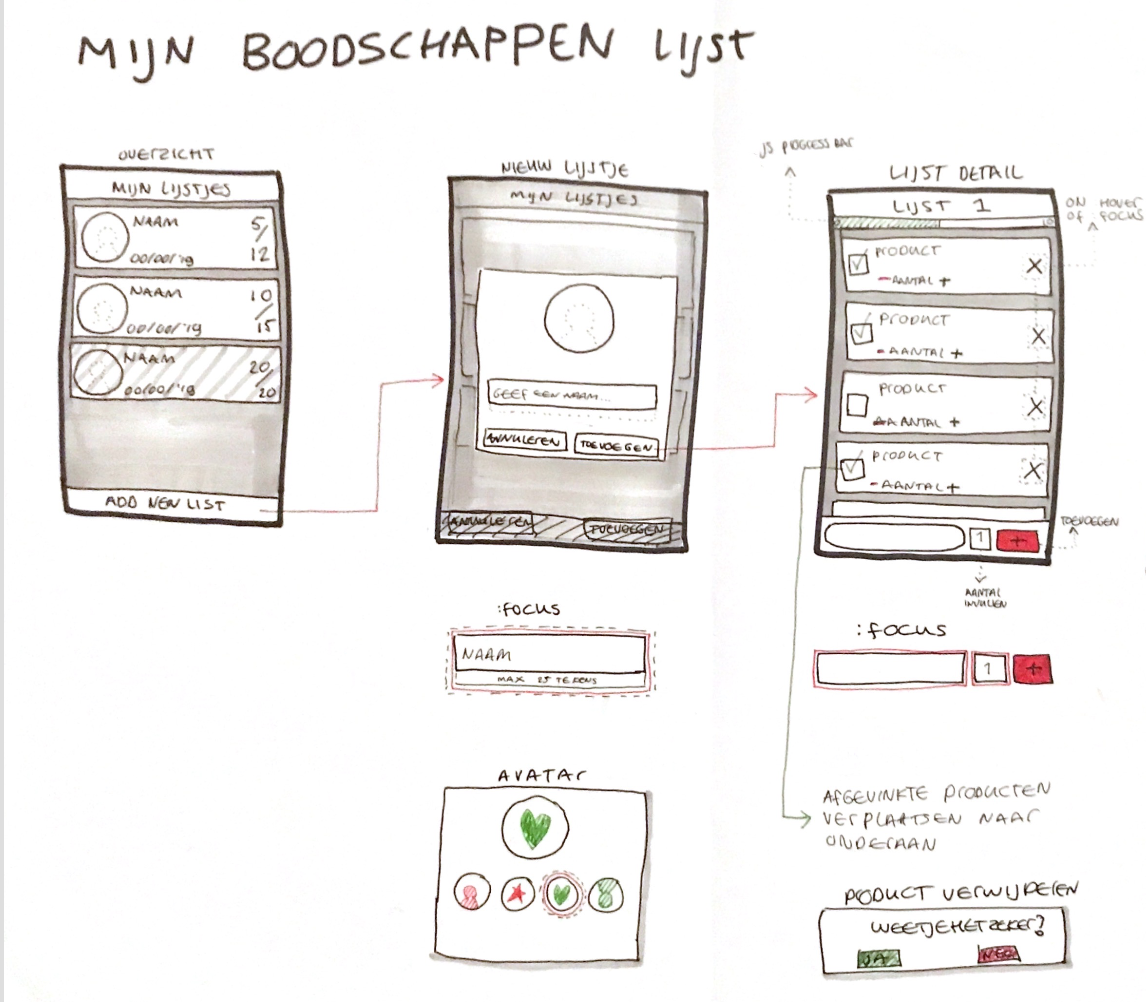 MIJN BOODSCHAPPEN LIJST
OVERZICHT
MIJN LIJSTJES
NAAM 5/12
00/00/'19
NAAM 10/15
00/00/'19
NAAM 20/20
00/00/'19
ADD NEW LIST
NIEUW LIJSTJE
MIJN LIJSTJES
GEEF EEN NAAM...
ANNULEREN TOEVOEGEN
ANNULEREN TOEVOEGEN
:FOCUS
NAAM
MAX 25 TEKENS
AVATAR
JS PROGRESS BAR
LIJST DETAIL
LIJST 1
ON HOVER
OF FOCUS
PRODUCT X
- AANTAL +
PRODUCT X
- AANTAL +
PRODUCT X
AANTAL +
PRODUCT X
- AANTAL +
1 +
TOEVOEGEN
AANTAL
INVULLEN
:FOCUS
1 +
AFGEVINKTE PRODUCTEN
VERPLAATSEN NAAR
ONDERAAN
PRODUCT VERWIJDEREN
WEET JE HET ZEKER?
JA NEE